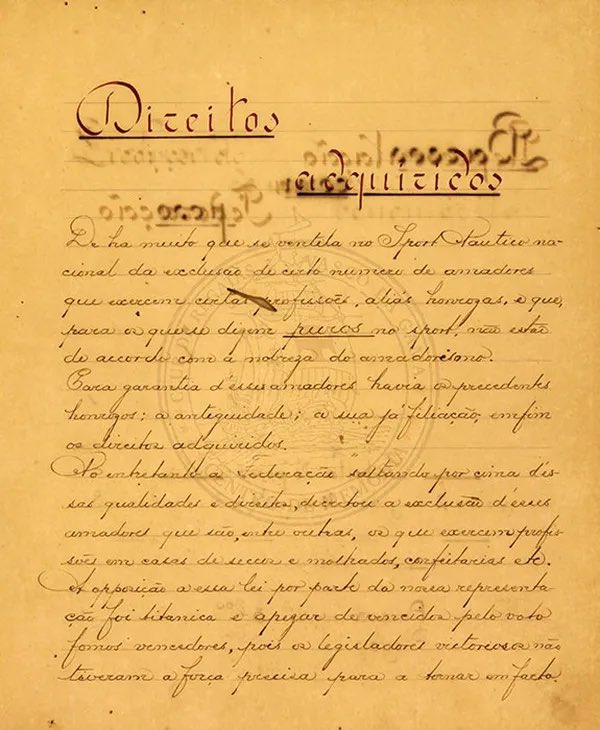 Direitos
adquiridos
De ha muito que se ventila no Sport Nautico na-
cional da exclusão de certo numero de amadores
que exercem certas profissões, aliás honrozas, e que,
para os que se dizem puros no sport, não estão
de accordo com a nobreza do amadorismo.
Para garantia d'esses amadores havia os precedentes
honrozos: a antiguidade; a sua já filiação, emfim
os direitos adquiridos.
No entretanto a Federação saltando por cima d'es-
sas qualidades e direitos, decretou a exclusão d'esses
amadores que são, entre outras, os que exercem profis-
sões em casas de seccos e molhados, confeitarias etc.
A opposição a essa lei por parte da nossa representa-
ção foi titanica e apezar de vencidos pelo voto
fomos vencedores, pois os legisladores victoriosos não
tiveram a força precisa para a tornar em facto.